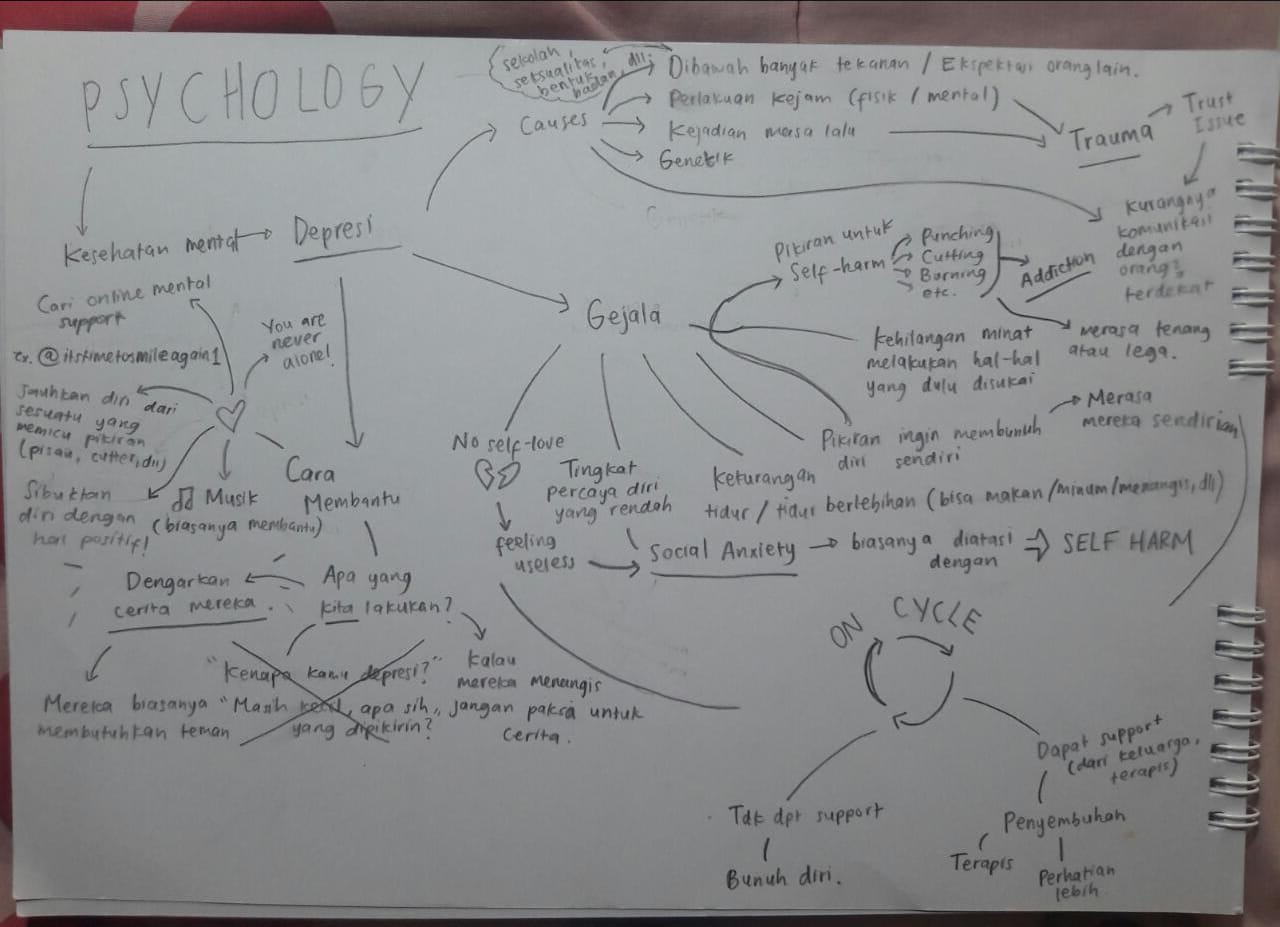 PSYCHOLOGY
sekolah,
seksualitas,
bentuk
badan, dll;
Causes
Dibawah banyak tekanan / Ekspektasi orang lain.
Perlakuan kejam (fisik / mental)
Kejadian masa lalu
Genetik
Trauma
Trust
Issue
Kurangnya
komunikasi
dengan
orang2
terdekat
Kesehatan mental
Depresi
Gejala
Pikiran untuk
Self-harm
Punching
Cutting
Burning
etc.
Addiction
merasa tenang
atau lega.
kehilangan minat
melakukan hal-hal
yang dulu disukai
Pikiran ingin membunuh
diri sendiri
Merasa
mereka sendirian
keturangan
tidur / tidur berlebihan (bisa makan/minum/menangis, dll)
Tingkat
percaya diri
yang rendah
No self-love
feeling
useless
Social Anxiety
biasanya diatasi
dengan
SELF HARM
Cari online mental
support
ex. @itstimetosmileagain1
You are
never
alone!
Jauhkan diri dari
sesuatu yang
memicu pikiran
(pisau, cutter, dll)
Sibukkan
diri dengan
hal positif!
Musik
(biasanya membantu)
Cara
Membantu
Apa yang
kita lakukan?
Dengarkan
cerita mereka.
Mereka biasanya
membutuhkan teman
"Kenapa kamu depresi?"
"Masih kecil, apa sih
yang dipikirin?
kalau
mereka menangis
jangan paksa untuk
cerita.
ON CYCLE
Tdk dpt support
Bunuh diri.
Dapat support
(dari keluarga,
terapis)
Penyembuhan
Terapis
Perhatian
lebih